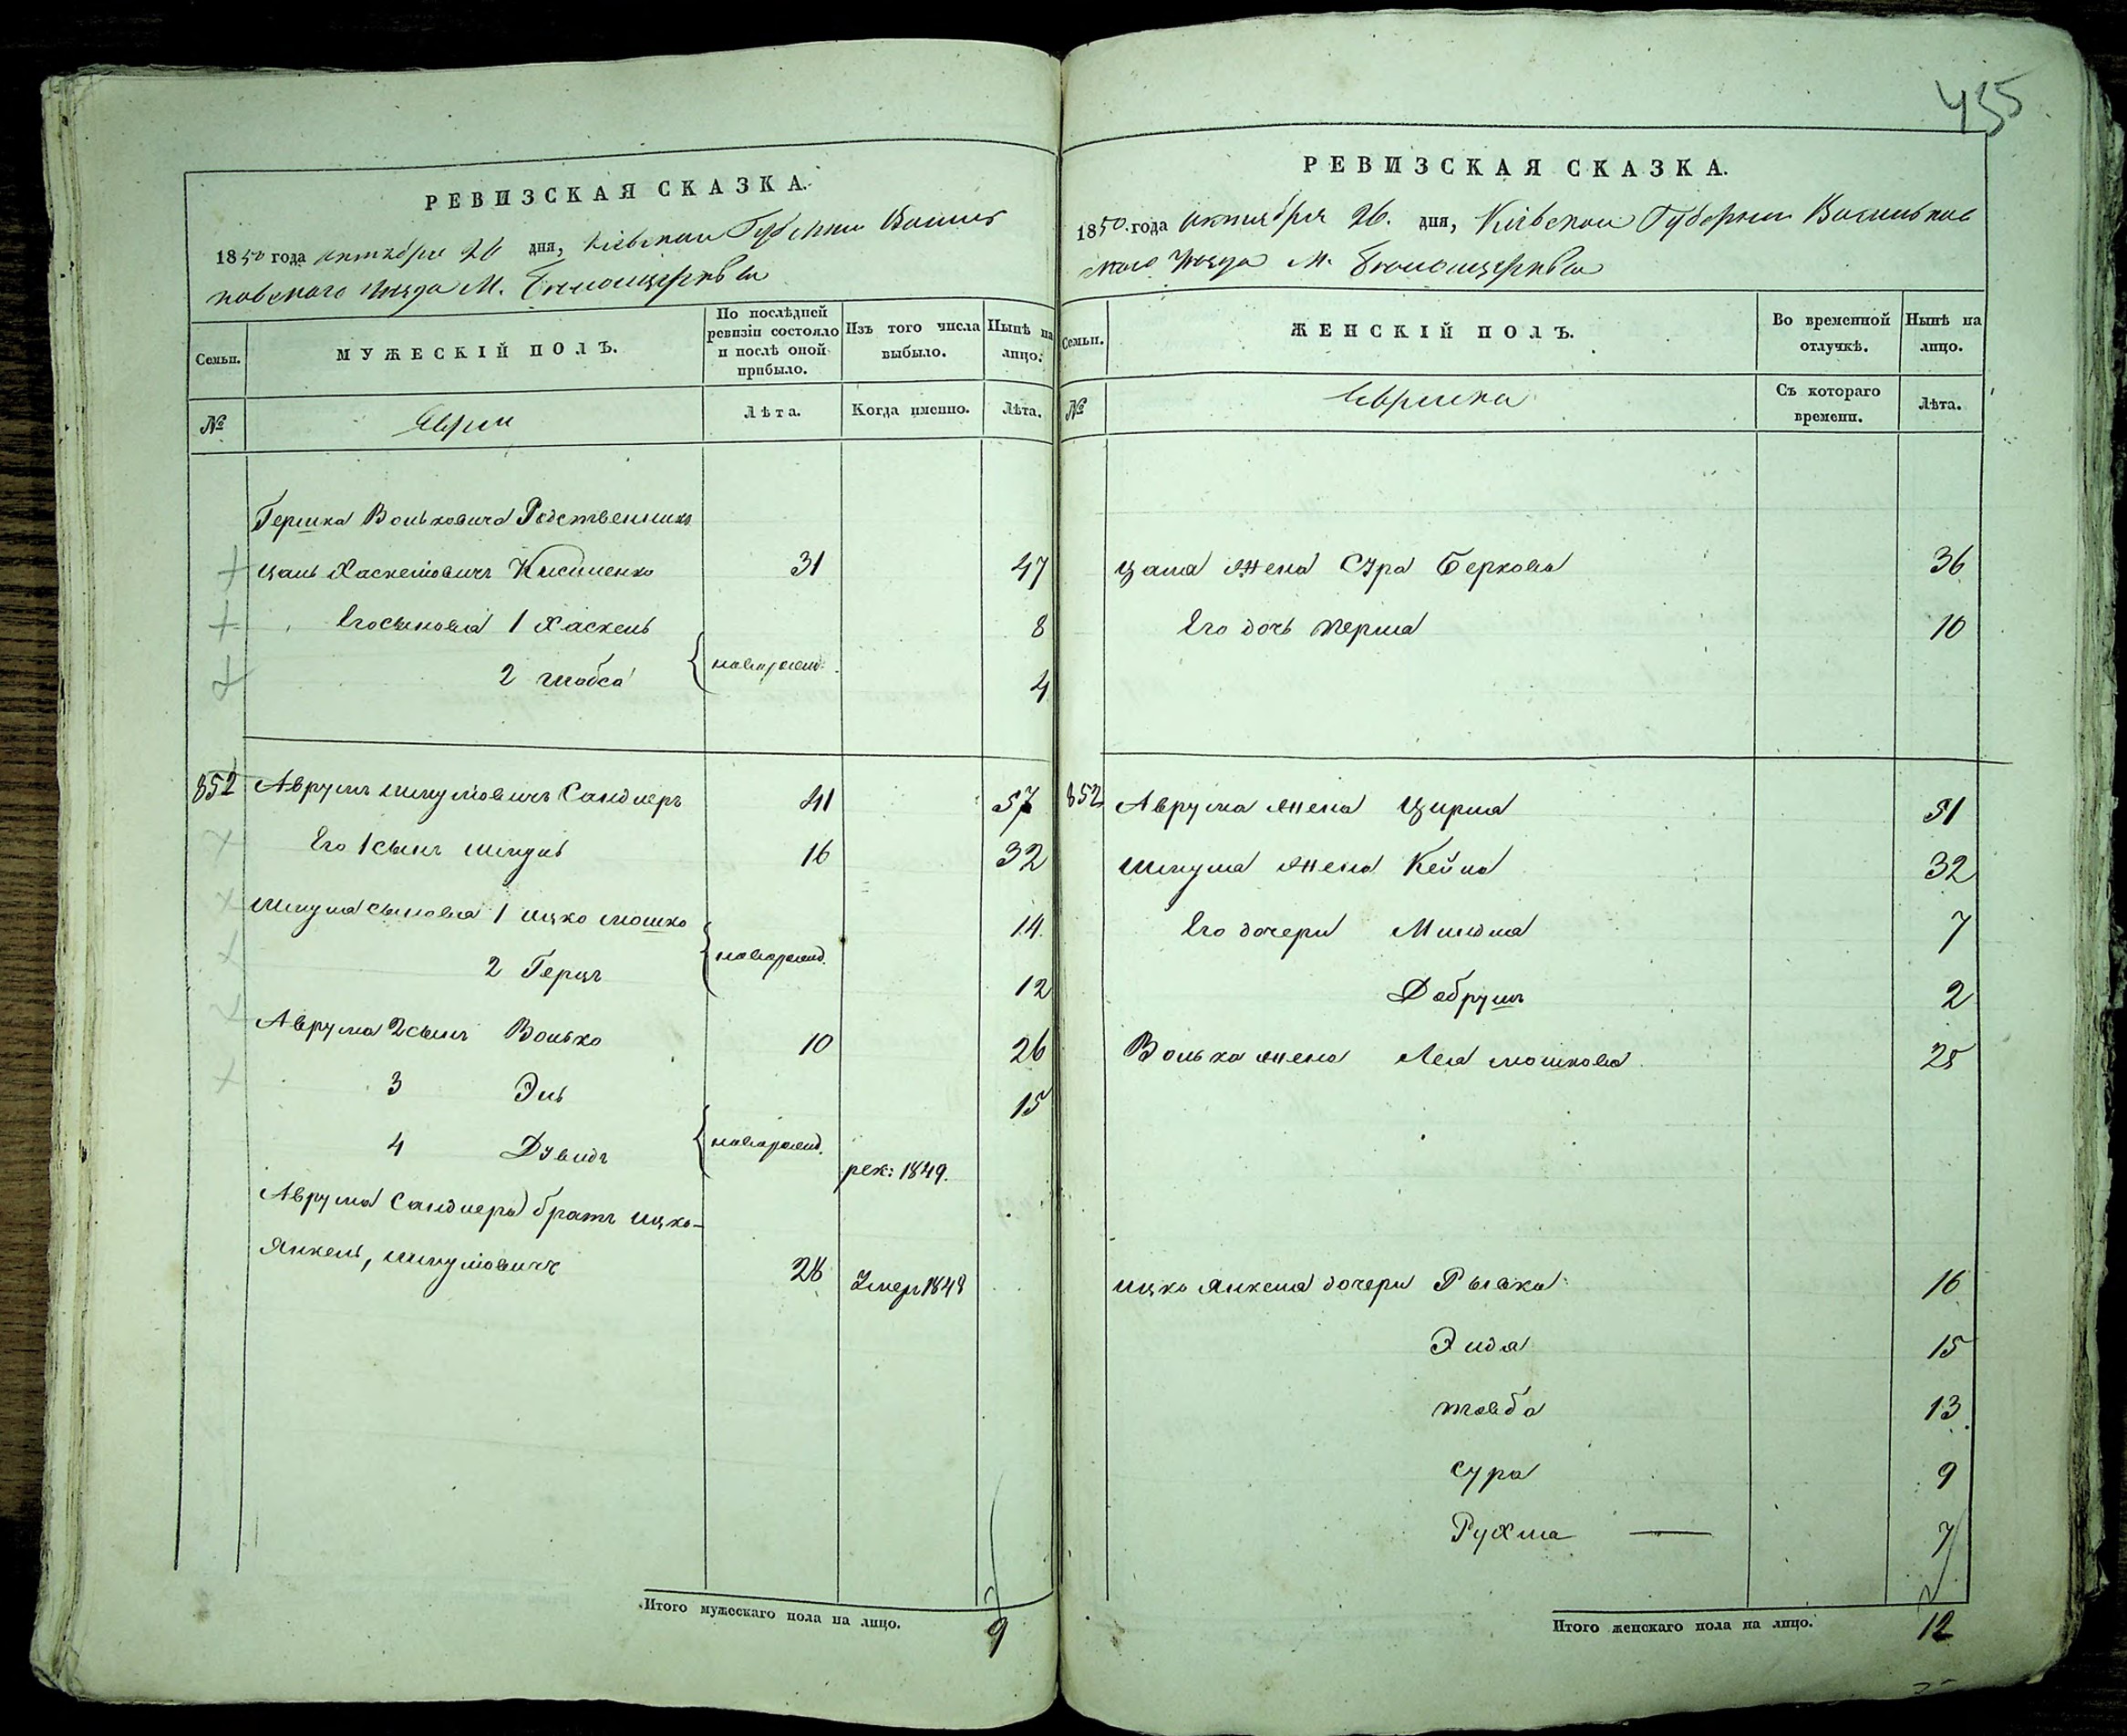 455
РЕВИЗСКАЯ СКАЗКА.
1850 года октября 26 дня, Кіевской Губерніи Василь
ковскаго Уезда М. Белоцеркви
Семьи.
МУЖЕСКІЙ ПОЛЪ.
По послѣдней ревизіи состояло и послѣ оной прибыло.
Изъ того числа выбыло.
Нынѣ на лицо.
№
Евреи
Лѣта.
Когда именно.
Лѣта.
Гершка Вольковича Родственникъ
Цаль Хаскелiовичъ 31 47
Его сыновья 1 Хаскель 8
2 Шабса новорожд. 4
852 Аврумъ Шмулiовичъ Сандлеръ 41 57
Его 1 сынъ Шмуль 16 32
Шмуля сыновья 1 Ицко Мошко 14
2 Герцъ новорожд. 12
Аврума 2 сынъ Волько 10 26
3 Эль 15
4 Дувидъ новорожд. рек: 1849.
Аврума Сандлера братъ Ицко-
Янкель, Шмулiовичъ 28 Умер 1848
Итого мужескаго пола на лицо. 9
РЕВИЗСКАЯ СКАЗКА.
1850 года октября 26. дня, Кіевской Губерніи Васильков
скаго Уезда М. Белоцеркви
Семьи.
ЖЕНСКІЙ ПОЛЪ.
Во временной отлучкѣ.
Нынѣ на лицо.
№
Еврейки
Съ котораго времени.
Лѣта.
Цаля жена Сура Беркова 36
Его дочь Перля 10
852 Аврума жена Цирля 51
Шмуля жена Кейла 32
Его дочери Миндля 7
Добрушъ 2
Волька жена Лея Мошкова 25
Ицко Янкеля дочери Рывка 16
Эидя 15
Товба 13
Сура 9
Рухля 7
Итого женскаго пола на лицо. 12